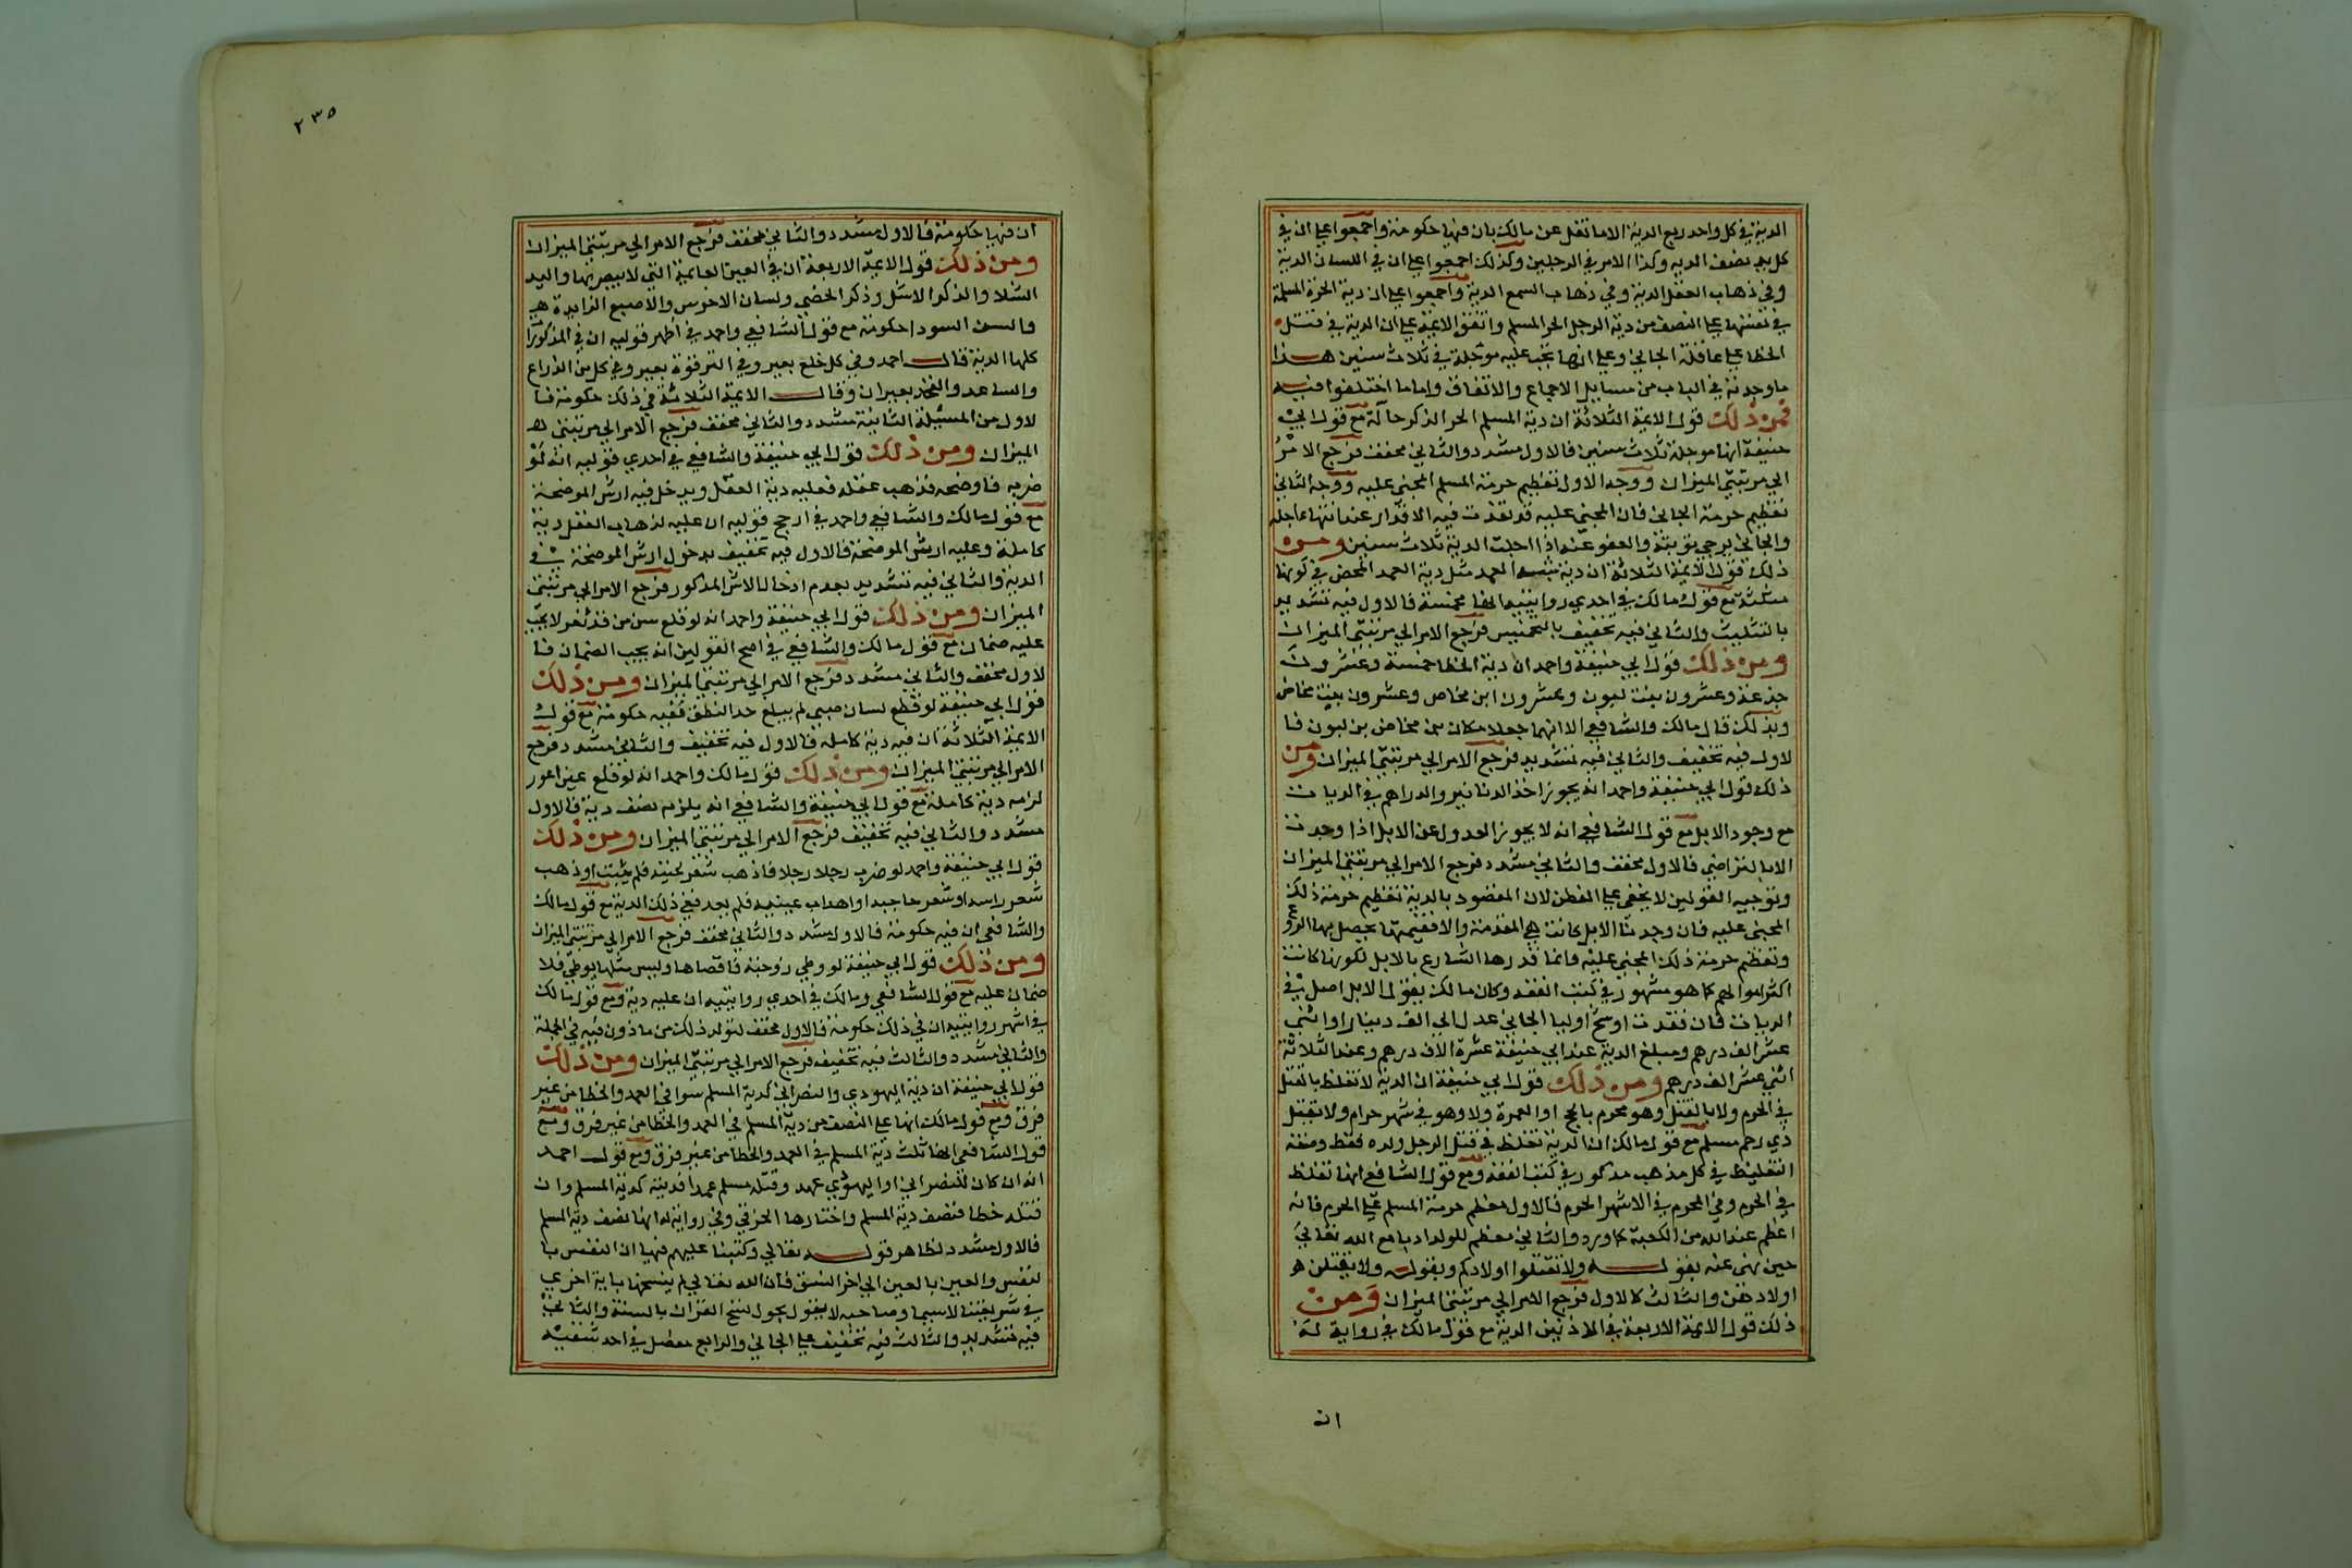 الدية في كل واحد ربع الدية الا ما نقل عن مالك بان فيها حكومة واجمعوا علي ان في
كل يد نصف الدية وكذا الامر في الرجلين وكذلك اجمعوا علي ان في اللسان الدية
وفي ذهاب العقل الدية وفي ذهاب السمع الدية واجمعوا علي ان دية الحرة المسلمة
في نفسها علي النصف من دية الرجل الحر المسلم واتفق الايمة علي ان الدية في قتل
الخطا علي عاقلة الجاني وعلي انها تجب عليه موجلة في ثلاث سنين هذا
ما وجدته في الباب من مسايل الاجماع والاتفاق واما ما اختلفوا فيه
فمن ذلك قول الايمة الثلاثة ان دية المسلم الحر الذكر حالة مع قول ابي
حنيفة انها موجلة ثلاث سنين فالاول مشدد والثاني مخفف فرجع الامر
الي مرتبتي الميزان ووجه الاول تعظيم حرمة المسلم المجني عليه ووجه الثاني
تعظيم حرمة الجاني فان المجني عليه قد نفذت فيه الاقدار عند انتها اجله
والجاني يرجي توبته والعفو عنه اذا اجلت الدية ثلاث سنين ومن
ذلك قول الايمة الثلاثة ان دية شبه العمد مثل دية العمد المحض في كونها
مثلثة مع قول مالك في احدي روايتيه انها مخمسة فالاول فيه تشديد
بالتثليث والثاني فيه تخفيف بالتخميس فرجع الامر الي مرتبتي الميزان
ومن ذلك قول ابي حنيفة واحمد ان دية الخطا خمسة وعشرون
جذعة وعشرون بنت لبون وعشرون ابن مخاض وعشرون بنت مخاض
وبذلك قال مالك والشافعي الا انهما جعلا مكان بن مخاض بن لبون فا
لاول فيه تخفيف والثاني فيه تشديد فرجع الامر الي مرتبتي الميزان ومن
ذلك قول ابي حنيفة واحمد انه يجوز اخذ الدنانير والدراهم في الديات
مع وجود الابل مع قول الشافعي انه لا يجوز العدول عن الابل اذا وجدت
الا بالتراضي فالاول مخفف والثاني مشدد فرجع الامر الي مرتبتي الميزان
وتوجيه القولين لا يخفي علي الفطن لان المقصود بالدية تعظيم حرمة ذلك
المجني عليه فان وجدنا الابل كانت هي المقدمة والا فقيمتها يحصل بها
وتعظيم حرمة ذلك المجني عليه وانما قدرها الشارع بالابل لكونها كانت
اكثر اموالهم كما هو مشهور في كتب الفقه وكان مالك يقول الابل اصل في
الديات فان فقدت اوليا الجاني عدل الي الف دينار او اثني
عشر الف درهم ومبلغ الدية عند ابي حنيفة عشرة الاف درهم وعند الثلاثة
اثني عشر الف درهم ومن ذلك قول ابي حنيفة ان الدية لا تغلظ بالقتل
في الحرم ولا بالقتل وهو محرم بالحج او العمرة ولا وهو في شهر حرام ولا بقتل
ذي رحم مسلم مع قول مالك ان الدية تغلظ في قتل الرجل ولده فقط وصفة
التغليظ في كل مذهب مذكور في كتب الفقه ومع قول الشافعي انها تغلظ
في الحرم وفي المحرم في الاشهر الحرم فالاول معظم حرمة المسلم علي الحرم فانه
اعظم عند الله من الكعبة كما ورد والثاني معظم للولد ادبا مع الله تعالي
حين نهي عنه بقوله ولا تقتلوا اولادكم وبقوله ولا يقتلن
اولادهن والثالث كالاول فرجع الامر الي مرتبتي الميزان ومن
ذلك قول الايمة الاربعة في الاذنين الدية مع قول مالك في رواية له
ان
٢٣٥
ان فيها حكومة فالاول مشدد والثاني مخفف فرجع الامر الي مرتبتي الميزان
ومن ذلك قول الايمة الاربعة ان في العين القايمة التي لا يبصر بها واليد
الشلا والذكر الاشل وذكر الخصي ولسان الاخرس والاصبع الزايدة
والسن السودا حكومة مع قول الشافعي واحمد في اظهر قوليه ان في المذكورات
كلها الدية قال احمد وفي كل ضلع بعير وفي الترقوة بعير وفي كل من الذراع
والساعد والفخذ بعيران وقال الايمة الثلاثة في ذلك حكومة فا
لاول من المسئلة الثانية مشدد والثاني مخفف فرجع الامر الي مرتبتي
الميزان ومن ذلك قول ابي حنيفة والشافعي في احدي قوليه انه لو
ضربه فاوضحه فذهب عقله فعليه دية العقل ويدخل فيه ارش الموضحة
مع قول مالك والشافعي واحمد في ارجح قوليه ان عليه لذهاب العقل دية
كاملة وعليه ارش الموضحة فالاول فيه تخفيف بدخول ارش الموضحة في
الدية والثاني فيه تشديد بعدم ادخال الارش المذكور فرجع الامر الي مرتبتي
الميزان ومن ذلك قول ابي حنيفة واحمد انه لو قلع سن من قد ثغر لا يجب
عليه ضمان مع قول مالك والشافعي في اصح القولين انه يجب الضمان فا
لاول مخفف والثاني مشدد فرجع الامر الي مرتبتي الميزان ومن ذلك
قول ابي حنيفة لو قطع لسان صبي لم يبلغ حد النطق ففيه حكومة مع قول
الايمة الثلاثة ان فيه دية كاملة فالاول فيه تخفيف والثاني مشدد فرجع
الامر الي مرتبتي الميزان ومن ذلك قول مالك واحمد انه لو قلع عين اعور
لزمه دية كاملة مع قول ابي حنيفة والشافعي انه يلزمه نصف دية فالاول
مشدد والثاني فيه تخفيف فرجع الامر الي مرتبتي الميزان ومن ذلك
قول ابي حنيفة واحمد لو ضرب رجل رجلا فاذهب شعر لحيته فلم ينبت او ذهب
شعر راسه او شعر حاجبه او اهداب عينيه فلم يعد ففي ذلك الدية مع قول مالك
والشافعي ان فيه حكومة فالاول مشدد والثاني مخفف فرجع الامر الي مرتبتي الميزان
ومن ذلك قول ابي حنيفة لو وطي زوجته فافضاها وليس مثلها يوطي فلا
ضمان عليه مع قول الشافعي ومالك في احدي روايتيه ان عليه دية ومع قول مالك
في اشهر روايتيه ان في ذلك حكومة فالاول مخفف لتولد ذلك من ماذون فيه في الجملة
والثاني مشدد والثالث فيه تخفيف فرجع الامر الي مرتبتي الميزان ومن ذلك
قول ابي حنيفة ان دية اليهودي والنصراني كدية المسلم سوا في العمد والخطا من غير
فرق ومع قول مالك انها علي النصف من دية المسلم في العمد والخطا من غير فرق ومع
قول الشافعي انها ثلث دية المسلم في العمد والخطا من غير فرق ومع قول احمد
انه ان كان للنصراني او اليهودي عهد وقتله مسلم عمدا فديته كدية المسلم وان
قتله خطا فنصف دية المسلم واختارها الخرقي وفي رواية له انها نصف دية المسلم
فالاول مشدد لظاهر قوله تعالي وكتبنا عليهم فيها ان النفس با
لنفس والعين بالعين الي اخر النسق فان الله تعالي لم ينسخها باية اخري
في شريعتنا لاسيما وصاحبه لا يقول بجول نسخ القران بالسنة والثاني
فيه تشديد والثالث فيه تخفيف علي الجاني والرابع مفصل في احد شقيه